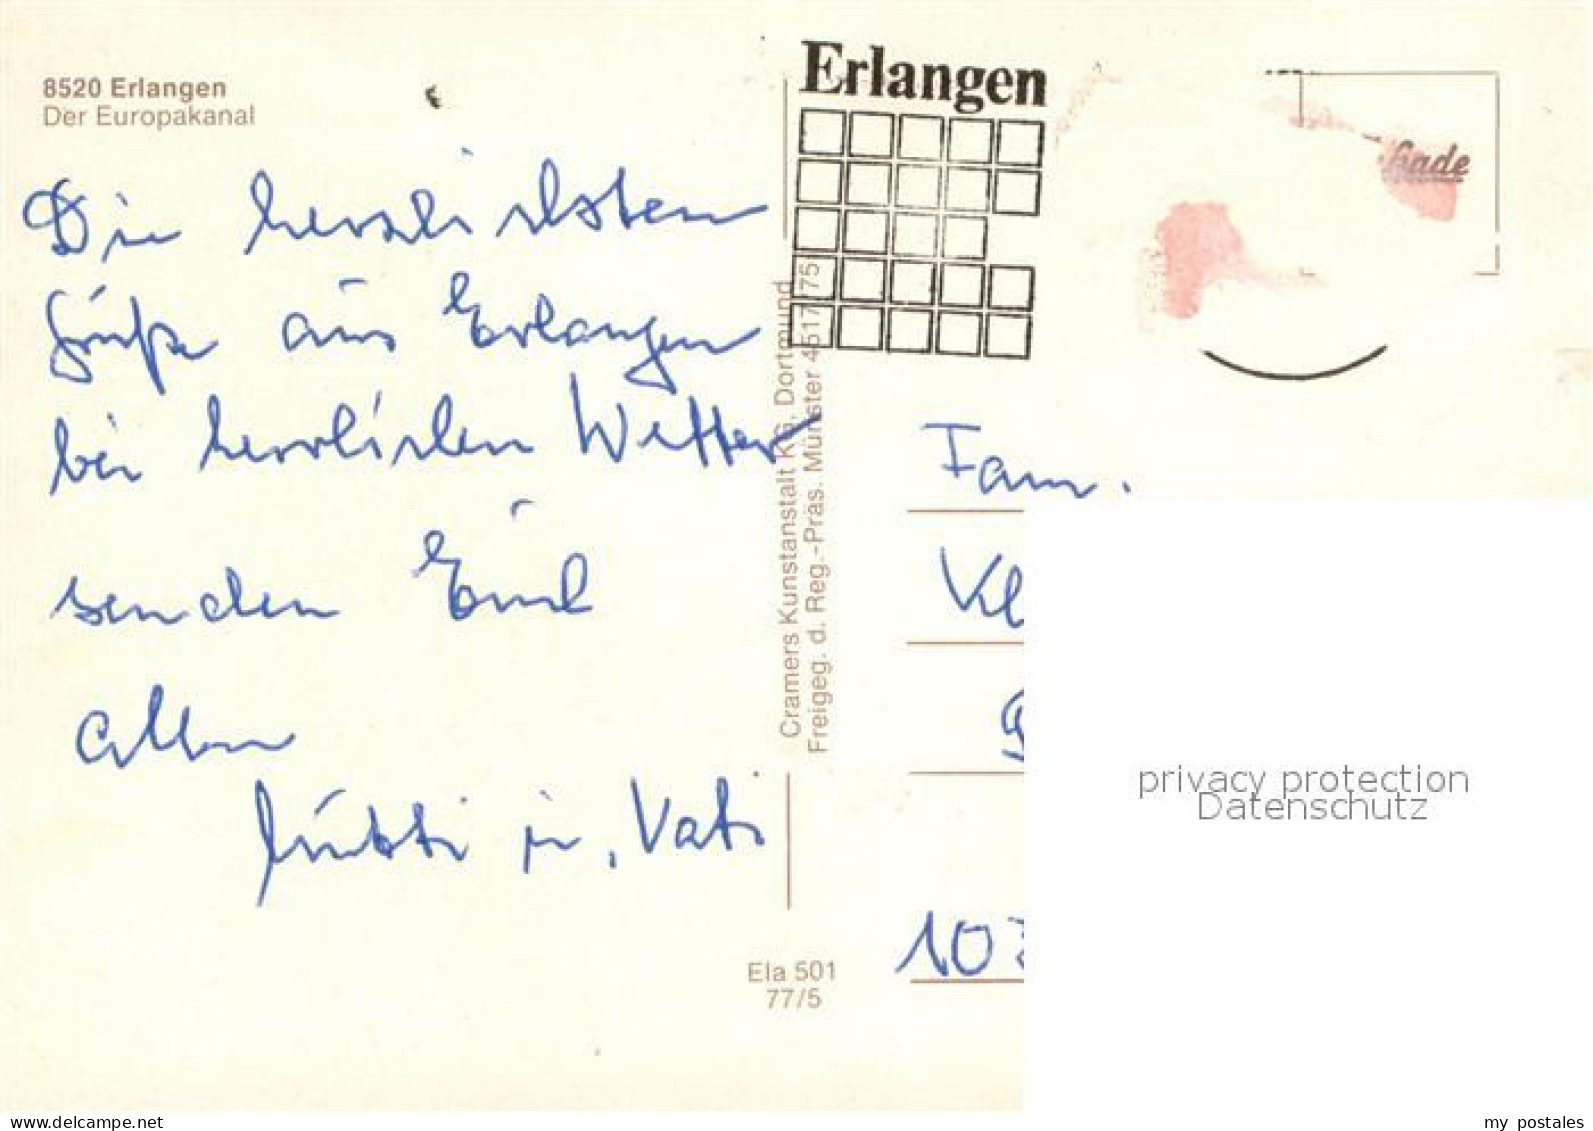 8520 Erlangen
Der Europakanal
Die herzlichsten
Grüße aus Erlangen
bei herrlichen Wetter
senden Euch
allen
Mutti u. Vati
Cramers Kunstanstalt KG, Dortmund
Freigeg. d. Reg.-Präs. Münster
Ela 501
77/5
Erlangen
Fam.
Kl
10
privacy protection
Datenschutz
delcampe.net
my postales